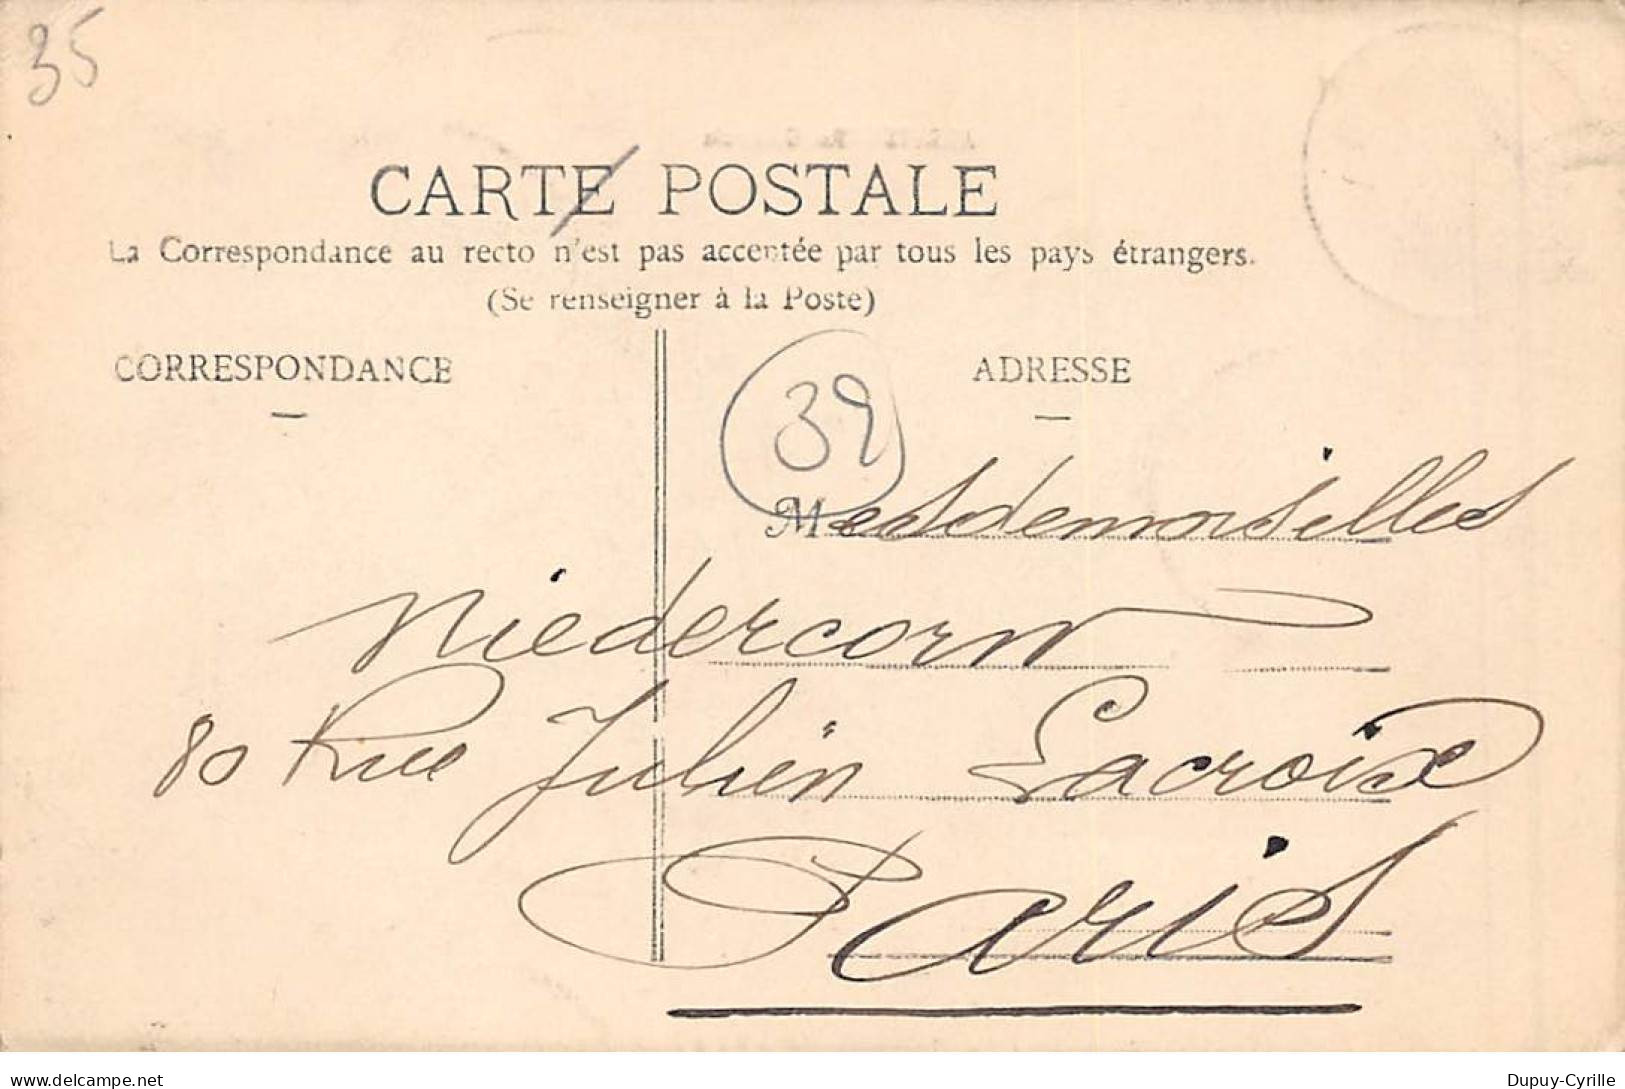 35
CARTE POSTALE
La Correspondance au recto n'est pas acceptée par tous les pays étrangers.
(Se renseigner à la Poste)
CORRESPONDANCE
ADRESSE
39
Mesdemoiselles
Niedercorn
80 Rue Julien Lacroix
Paris
delcampe.net
Dupuy-Cyrille